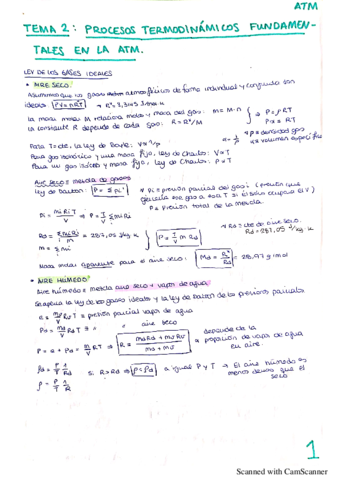 ATM
TEMA 2: PROCESOS TERMODINÁMICOS FUNDAMEN-
TALES EN LA ATM.
LEY DE LOS GASES IDEALES
• AIRE SECO:
Asumimos que los gases atmosféricos de forma individual y conjunta son
ideales. PV = nRT → R* = 8,3145 J/mol K
La masa molar M relaciona moles y masa del gas: m = M·n
La constante R depende de cada gas: R = R*/M
P = ρRT
Pα = RT
α = 1/ρ
ρ = densidad gas
α = volumen específico
Para T = cte, la ley de Boyle: V ∝ 1/P
Para gas isobárico y una masa fija, ley de Charles: V ∝ T
Para un gas isotérico y masa fija, ley de Charles: P ∝ T
Aire seco = mezcla de gases
Ley de Dalton: P = Σ Pi → Pi = presión parcial del gas i (presión que
ejercería ese gas a esa T si él solo ocupara el V)
P = Presión total de la mezcla.
Pi = mi Ri T / V → P = T/V Σ mi Ri
Rd = Σ mi Ri / m = 287,05 J/kg K
m = Σ mi
P = 1/V m Rd T
→ Rd = cte de aire seco.
Rd = 287,05 J/kg K
Masa molar aparente para el aire seco: Md = R*/Rd = 28,97 g/mol
• AIRE HÚMEDO:
Aire húmedo = mezcla aire seco + vapor de agua
Se aplica la ley de los gases ideales y la ley de Dalton de las presiones parciales
e = mv/V Rv T = presión parcial vapor de agua
Pd = md/V Rd T = " " aire seco
P = e + Pd = m/V R T → R = md Rd + mv Rv / md + mv
depende de la
proporción de vapor de agua
en aire
ρd = P/T 1/Rd
ρ = P/T 1/R
si R > Rd → ρ < ρd a igual P y T → El aire húmedo es
menos denso que el
seco
1
Scanned with CamScanner